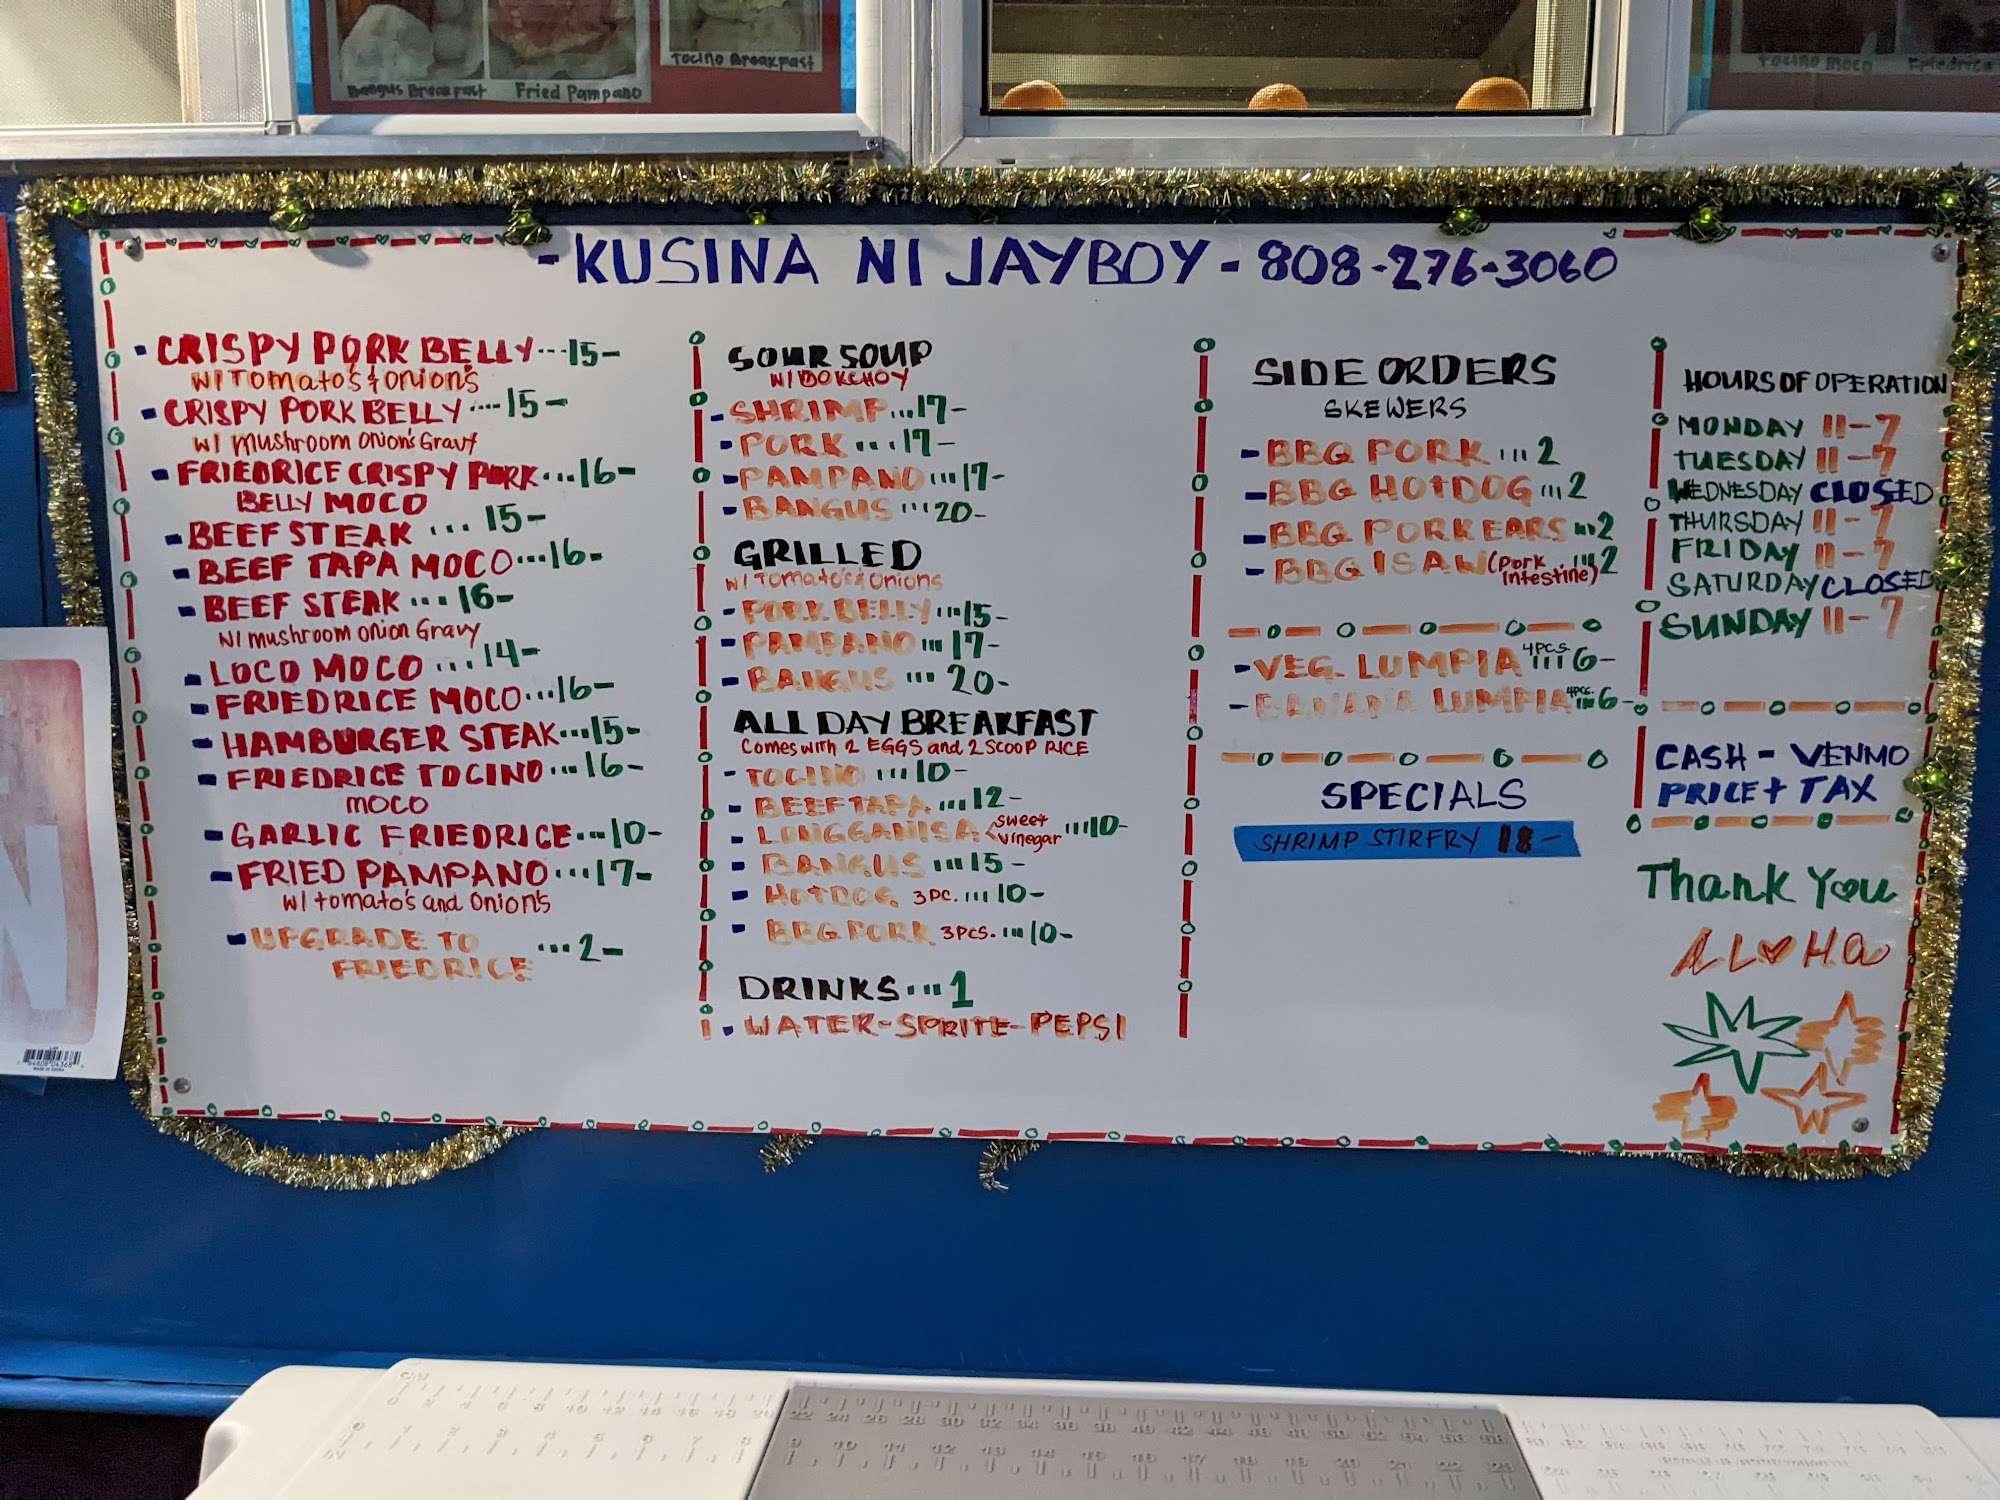 Bangus Breakfast
Fried Pampano
Tocino Breakfast
Tocino Moco
Friedrice
- KUSINA NI JAYBOY - 808-276-3060
- CRISPY PORK BELLY ---15-
W/ Tomato's & Onion's
- CRISPY PORK BELLY ----15-
W/ Mushroom Onion's Gravy
- FRIEDRICE CRISPY PORK ...16-
BELLY MOCO
- BEEF STEAK ... 15-
- BEEF TAPA MOCO ...16-
- BEEF STEAK ... 16-
W/ mushroom onion Gravy
- LOCO MOCO ...14-
- FRIEDRICE MOCO ...16-
- HAMBURGER STEAK ...15-
- FRIEDRICE TOCINO ...16-
MOCO
- GARLIC FRIEDRICE ...10-
- FRIED PAMPANO ...17-
W/ tomato's and Onion's
- UPGRADE TO ...2-
FRIEDRICE
SOUR SOUP
W/ BOKCHOY
- SHRIMP ...17-
- PORK ...17-
- PAMPANO ...17-
- BANGUS ...20-
GRILLED
W/ Tomato's & Onions
- PORK BELLY ...15-
- PAMPANO ...17-
- BANGUS ...20-
ALL DAY BREAKFAST
Comes with 2 EGGS and 2 SCOOP RICE
- TOCINO ...10-
- BEEF TAPA ...12-
- LONGGANISA < sweet vinegar ...10-
- BANGUS ...15-
- HOTDOG 3PC. ...10-
- BBQ PORK 3PCS. ...10-
DRINKS ...1
- WATER-SPRITE-PEPSI
SIDE ORDERS
SKEWERS
- BBQ PORK ...2
- BBQ HOTDOG ...2
- BBQ PORK EARS ...2
- BBQ ISAW (Pork intestine) ...2
- VEG. LUMPIA 4PCS. ...6-
- BANANA LUMPIA 4PCS. ...6-
SPECIALS
SHRIMP STIRFRY 18-
HOURS OF OPERATION
MONDAY 11-7
TUESDAY 11-7
WEDNESDAY CLOSED
THURSDAY 11-7
FRIDAY 11-7
SATURDAY CLOSED
SUNDAY 11-7
CASH - VENMO
PRICE + TAX
Thank You
ALOHA